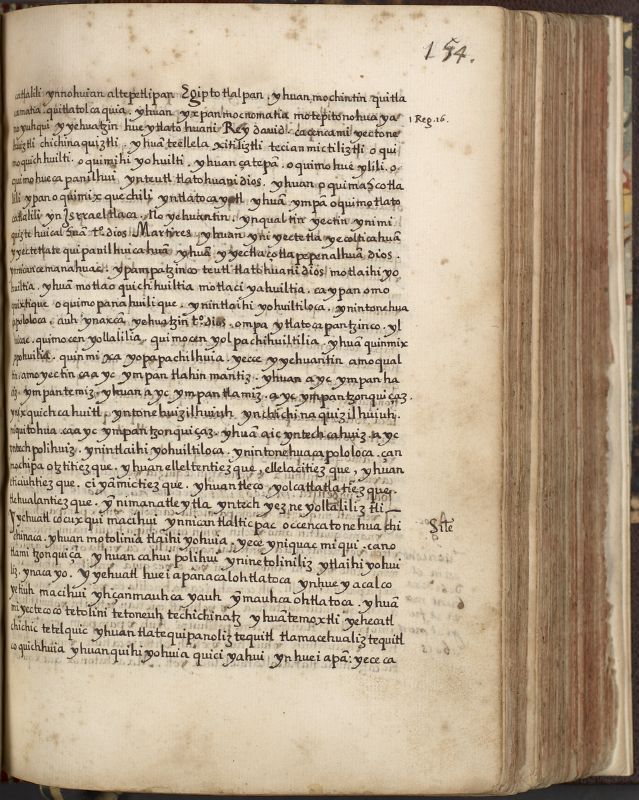 154.
catlalili ynnohuian altepetlipan Egipto tlalpan. yhuan mochintin quitla
camatia. quitlatolcaquia. yhuan yxpan mocnomatia motepitonohuaya
no yuhqui yyehuatzin huey tlatohuani Rey david. cacencamiyectone
1 Reg. 16.
huiztli chichinaquiztli. yhuā teellela xitiliztli tecian mictiliztli o qui
moquichhuilti. o quimihiyohuilti. yhuan çatepā. o quimohueylili. o
quimohuecapanilhui. ynteutl tlatohuani dios. yhuan o quimaçotla
lili ypan o quimixquechili yntlatocayotl. yhuā ympa o quimotlato
catlalili yn Israel tlaca. No yehuantin. ynqualtin yectin ynimi
dios Martires yhuan yniyectetla yecoltica huā
yyectetlatequipanilhuicahuā yhuā yyectlaçotlapepenalhuā dios.
ynican cemanahuac. ypampatzinco teutl tlatohuani dios motlaihiyo
huiltia. yhuā motlaoquichhuiltia motlaciyahuiltia. caypan omo
quixtique o quimopanahuilique. ynintlaihiyohuiltiloca. ynintonehua
capololoca. auh ynaxcā yehuatzin tō dios. ompa ytlatocapantzinco. yl
huicac. quimocenyollalilia. quimocenyolpachihuiltilia. yhuā quinmix
popohuilia. quinmixcayopapachilhuia. yece yyehuantin amoqual
tin. amoyectin caayc ympan tlahinmantiz. yhuan ayc ympan ha
yhuan ayc ympan tlamiz. ayc ympantzonquiçaz.
ynixquichcahuitl. yntonehuizilhuizh ynchichinaquizilhuizh.
niquitohua. caayc ympantzonquiçaz. yhuā aic yntechcahuiz. ayc
yntechpolihuiz. ynintlaihiyohuiltiloca. ynintonehuacapololoca. çan
mochipa otztiezque. yhuan ellelltentiezque, ellelacitiezque, yhuan
ciyamictiezque. yhuan tleco yolcatlatlatiezque.
tlehualantiezque. ynimanatleytla yntech yezneyollaliliztli —
Yyehuatl cocuxqui macihui ynnican tlalticpac occencatonehua chi
Site
chinaca. yhuan motolinia tlaihiyohuia, yece yniquac miqui. cano
tlami tzonquiça, yhuan cahui polihui yninetoliniliz ytlaihiyohui
liz, ynacayo. yyehuatl huei apan acalohtlatoca ynhuey acalco
yetiuh macihui yhiçanmauhca yauh ymauhca ohtlatoca. yhuā
miyectecoco tetolini tetoneuh techichinatz yhuā temoxtli yeheatl
chichic tetelquic yhuan tlatequipanoliz tequitl tlamacehualiz tequitl
coquichhuia yhuan quihiyohuia quiciyahui ynhuei apā: yece ca